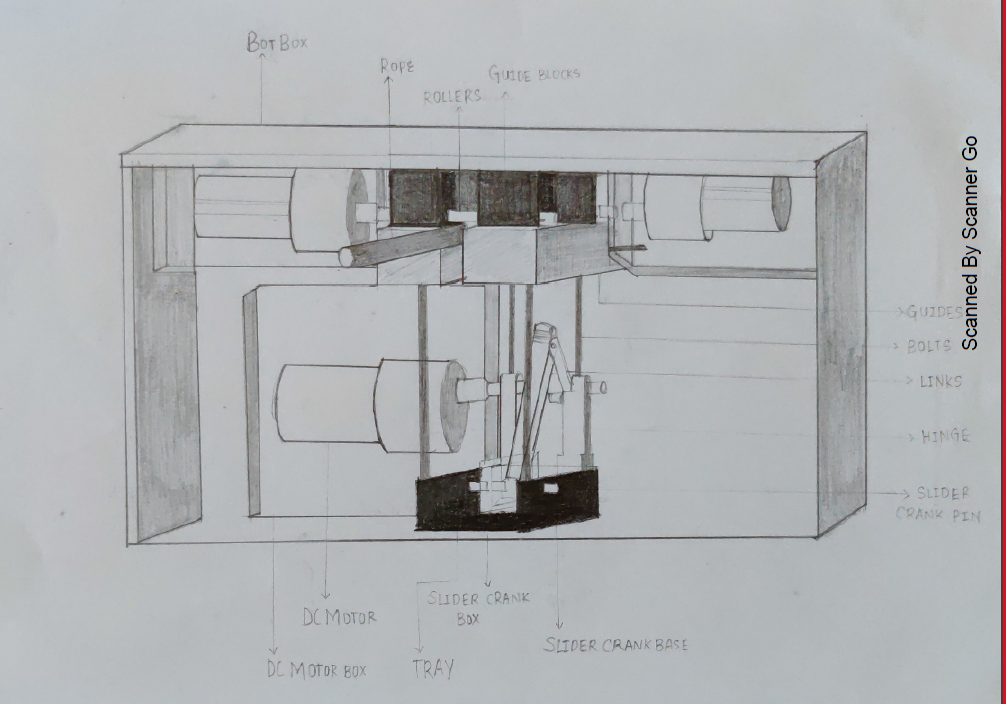 BOT BOX
ROPE
GUIDE BLOCKS
ROLLERS
GUIDES
BOLTS
LINKS
HINGE
SLIDER
CRANK PIN
SLIDER CRANK
BOX
DC MOTOR
SLIDER CRANK BASE
DC MOTOR BOX
TRAY
Scanned By Scanner Go